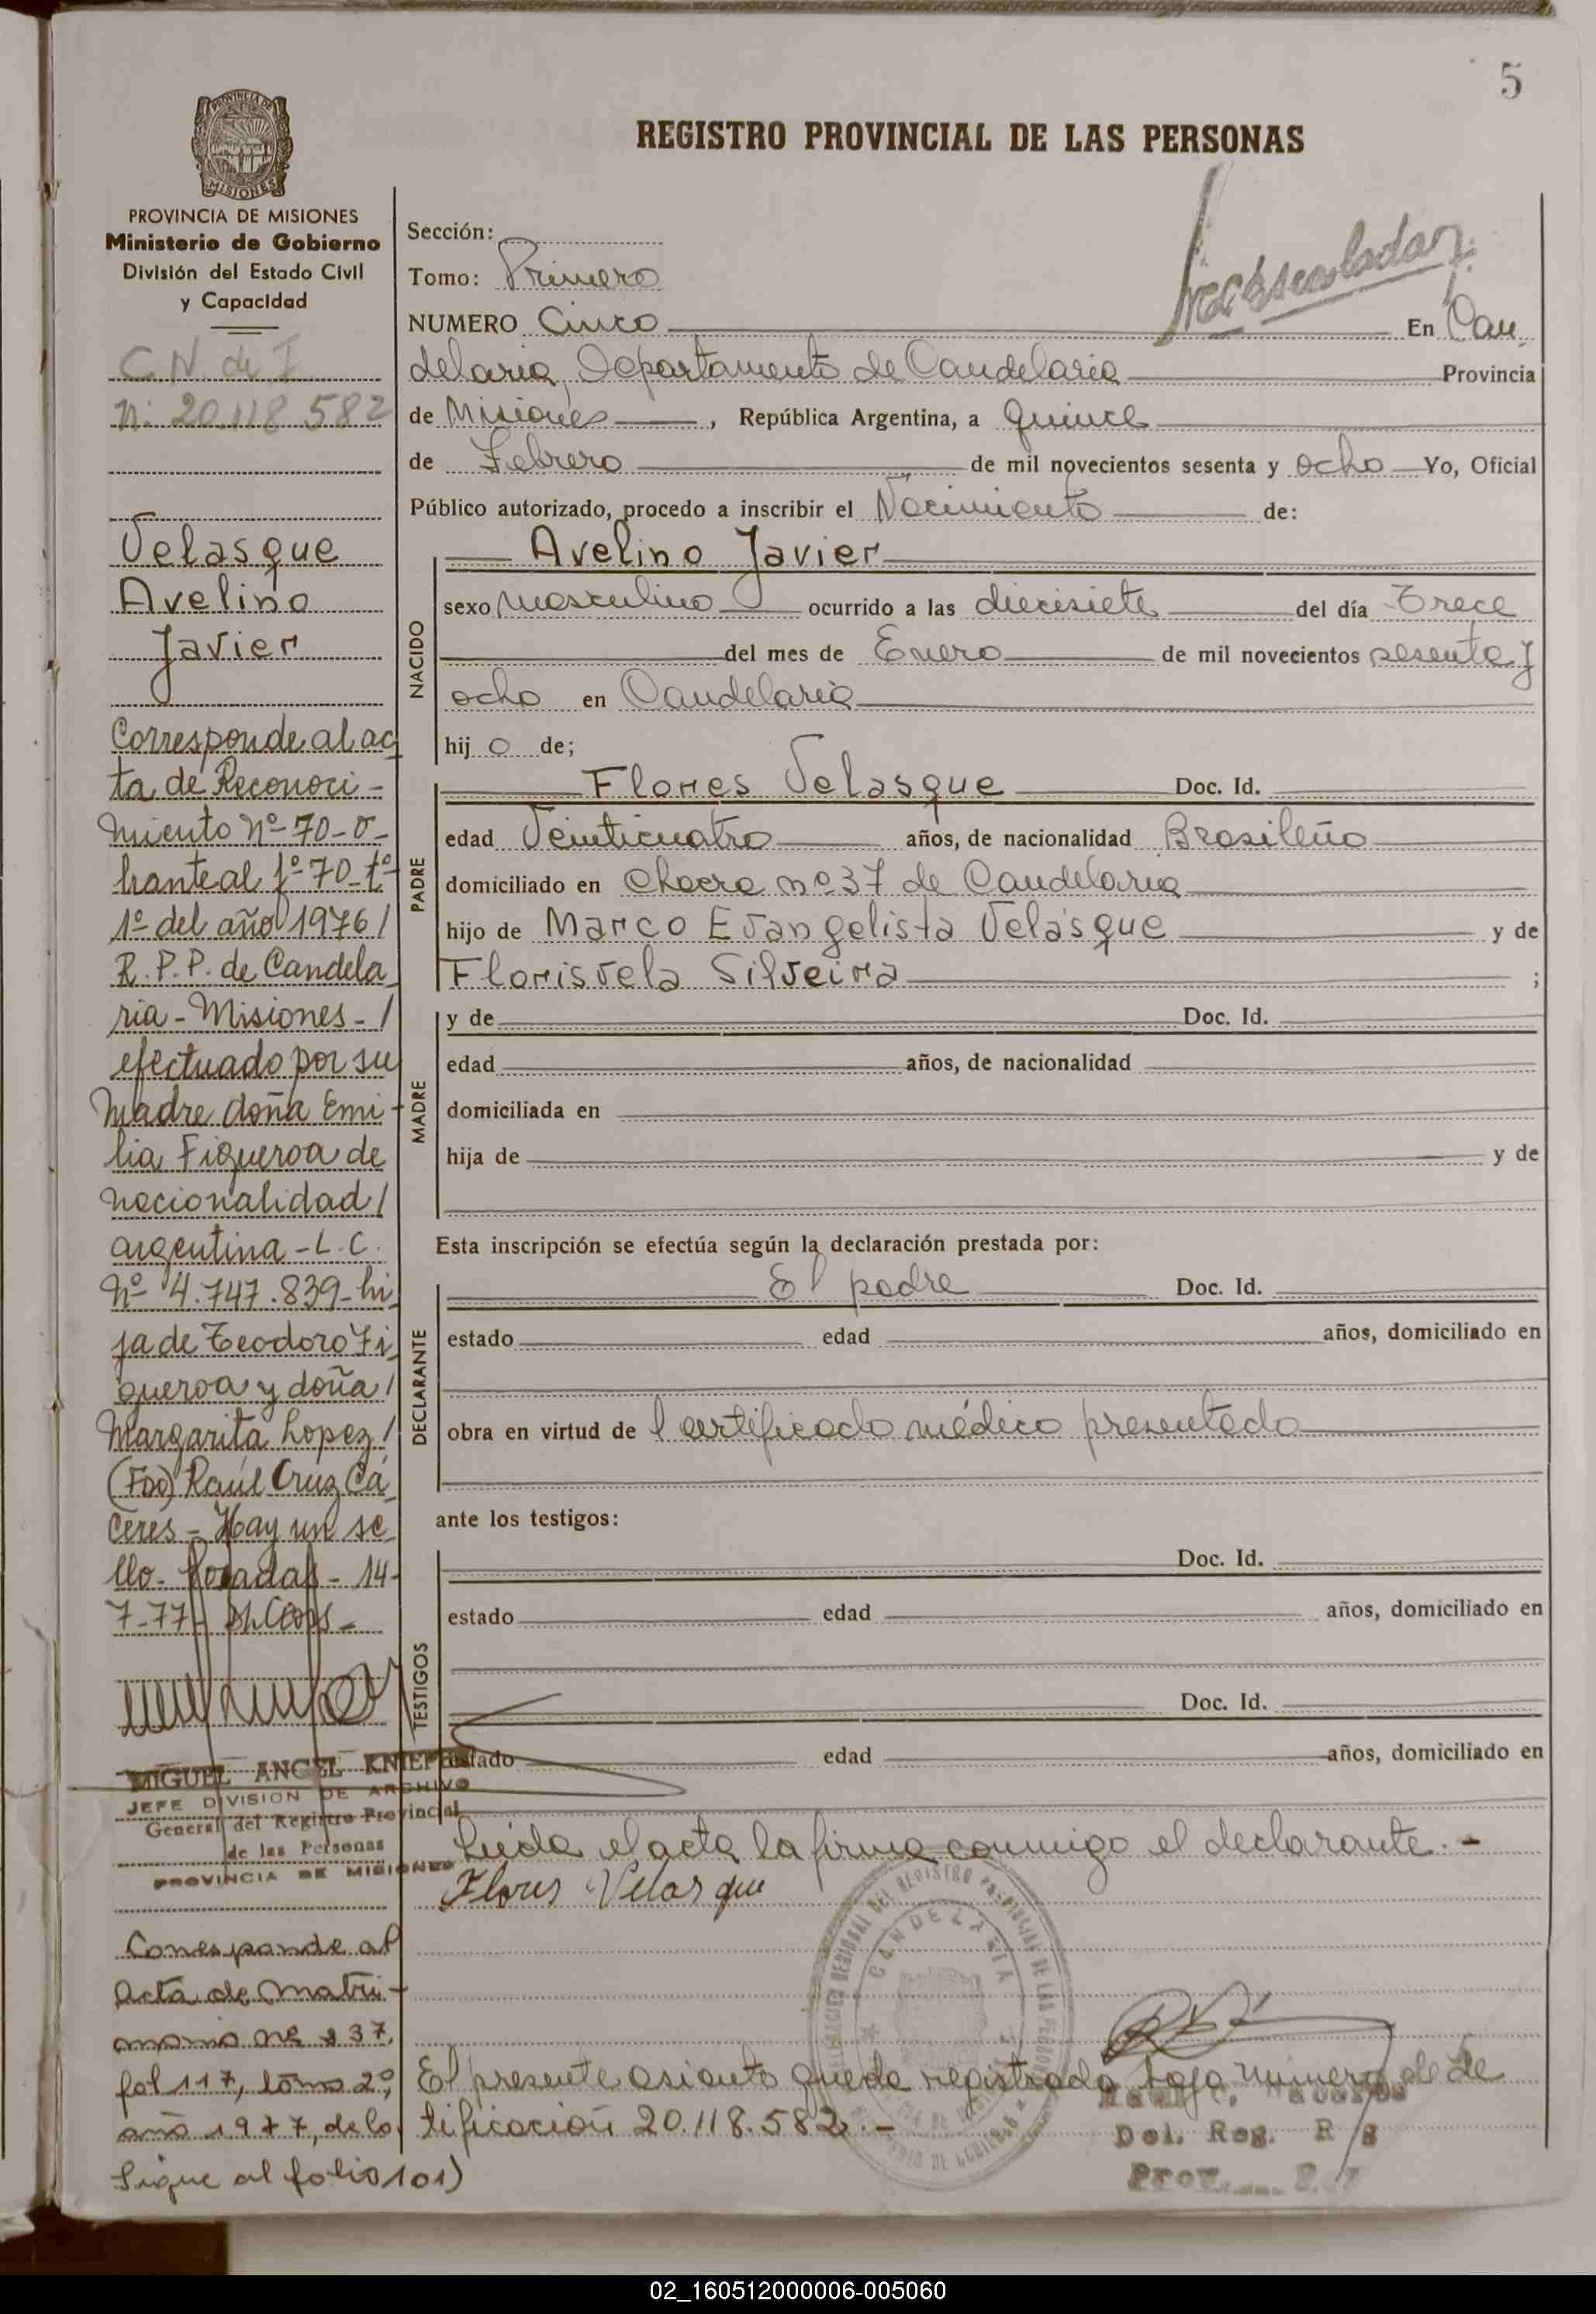 5
REGISTRO PROVINCIAL DE LAS PERSONAS
PROVINCIA DE
MISIONES
PROVINCIA DE MISIONES
Ministerio de Gobierno
División del Estado Civil
y Capacidad
C.N. de I
N: 20.118.582
Velasque
Avelino
Javier
Corresponde al ac
ta de Reconoci-
miento Nº 70-o-
brante al fº 70-tº
1º del año 1976/
R.P.P. de Candela
ria - Misiones -/
efectuado por su
Madre doña Emi-
lia Figueroa de
nacionalidad/
argentina - L.C.
Nº 4.747.839 - hi
ja de Teodoro Fi
gueroa y doña/
Margarita Lopez/
(Fdo) Raúl Cruz Cá
ceres - Hay un se
llo. Posadas - 14-
7-77-
MIGUEL ANGEL KNIEPO
JEFE DIVISION DE ARCHIVO
General del Registro Provincial
de las Personas
PROVINCIA DE MISIONES
Corresponde al
Acta de Matri-
monio Nº 237,
fol 117, tomo 2º,
año 1977, de lo
Sigue al folio 101)
Sección:
Tomo: Primero
NUMERO Cinco En Can
delaria, Departamento de Candelaria Provincia
de Misiones, República Argentina, a quince
de Febrero de mil novecientos sesenta y ocho Yo, Oficial
Público autorizado, procedo a inscribir el Nacimiento de:
NACIDO
Avelino Javier
sexo masculino ocurrido a las diecisiete del día Trece
del mes de Enero de mil novecientos sesenta y
ocho en Candelaria
hijo de;
PADRE
Flores Velasque Doc. Id.
edad Veinticuatro años, de nacionalidad Brasileño
domiciliado en Chacra nº 37 de Candelaria
hijo de Marco Evangelista Velasque y de
Florisvela Silveira ;
MADRE
y de Doc. Id.
edad años, de nacionalidad
domiciliada en
hija de y de
Esta inscripción se efectúa según la declaración prestada por:
DECLARANTE
El padre Doc. Id.
estado edad años, domiciliado en
obra en virtud de l certificado médico presentado
ante los testigos:
TESTIGOS
Doc. Id.
estado edad años, domiciliado en
Doc. Id.
estado edad años, domiciliado en
Leída el acta, la firma conmigo el declarante.-
Flores Velasque
CANDELARIA
El presente asiento queda registrado bajo número de Iden
tificación 20.118.582.-
Del. Reg. R
Prov.
02_160512000006-005060